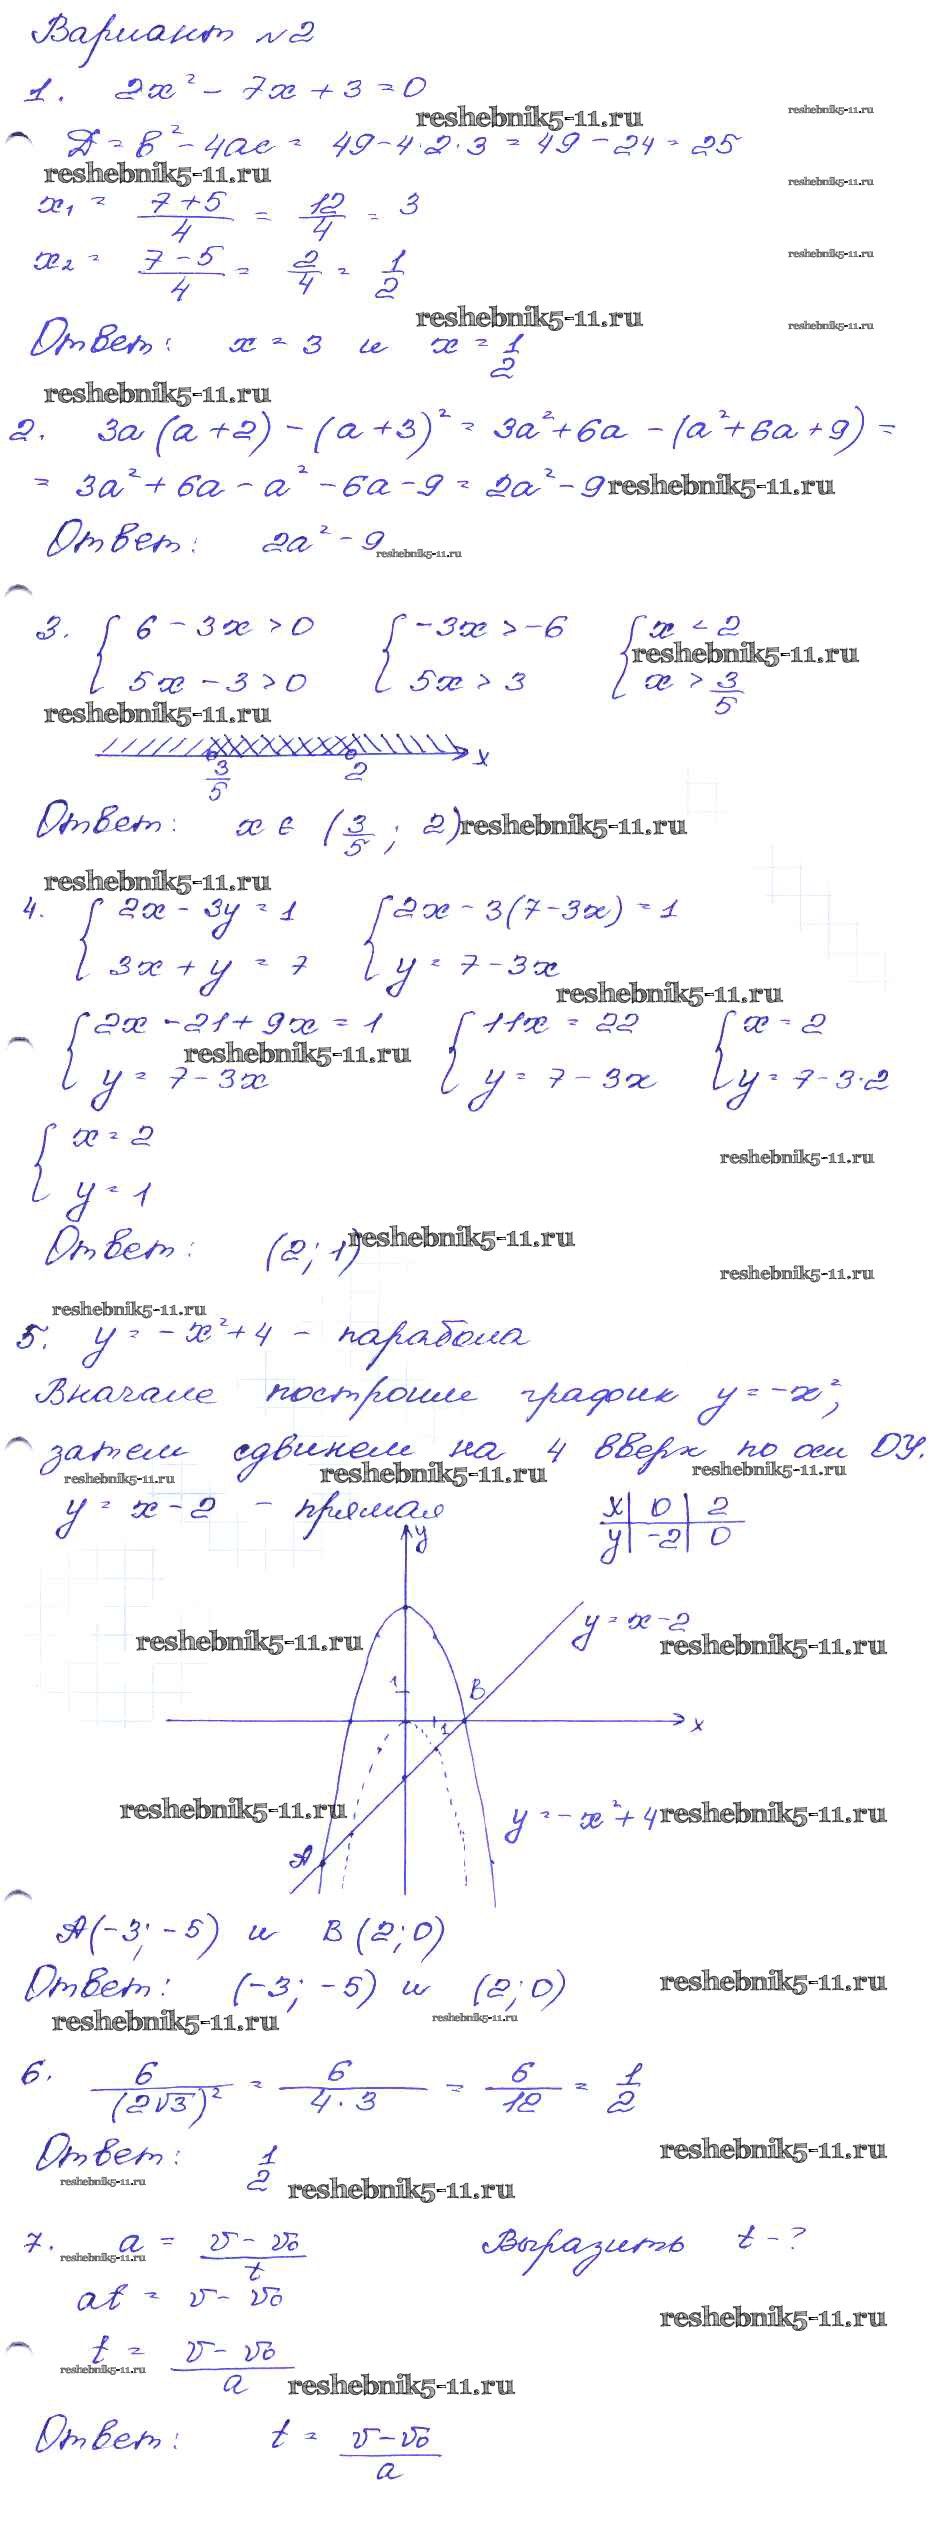 Вариант №2
1. 2x² - 7x + 3 = 0
reshebnik5-11.ru reshebnik5-11.ru
D = b² - 4ac = 49 - 4·2·3 = 49 - 24 = 25
reshebnik5-11.ru reshebnik5-11.ru
x₁ = (7+5)/4 = 12/4 = 3
x₂ = (7-5)/4 = 2/4 = 1/2
reshebnik5-11.ru
reshebnik5-11.ru reshebnik5-11.ru
Ответ: x = 3 и x = 1/2
reshebnik5-11.ru
2. 3a(a+2) - (a+3)² = 3a² + 6a - (a² + 6a + 9) =
= 3a² + 6a - a² - 6a - 9 = 2a² - 9 reshebnik5-11.ru
Ответ: 2a² - 9 reshebnik5-11.ru
3. { 6 - 3x > 0 { -3x > -6 { x < 2
reshebnik5-11.ru
5x - 3 > 0 5x > 3 x > 3/5
reshebnik5-11.ru
3/5 2 x
Ответ: x ∈ (3/5; 2) reshebnik5-11.ru
reshebnik5-11.ru
4. { 2x - 3y = 1 { 2x - 3(7-3x) = 1
3x + y = 7 y = 7 - 3x
reshebnik5-11.ru
{ 2x - 21 + 9x = 1 { 11x = 22 { x = 2
reshebnik5-11.ru
y = 7 - 3x y = 7 - 3x y = 7 - 3·2
{ x = 2
reshebnik5-11.ru
y = 1
Ответ: (2; 1) reshebnik5-11.ru
reshebnik5-11.ru
reshebnik5-11.ru
5. y = -x² + 4 - парабола
Вначале построим график y = -x²,
затем сдвинем на 4 вверх по оси OY.
reshebnik5-11.ru reshebnik5-11.ru reshebnik5-11.ru
y = x - 2 - прямая x | 0 | 2
y | -2 | 0
y
y = x - 2
reshebnik5-11.ru reshebnik5-11.ru
1 B
1 x
reshebnik5-11.ru y = -x² + 4 reshebnik5-11.ru
A
A(-3; -5) и B(2; 0)
Ответ: (-3; -5) и (2; 0) reshebnik5-11.ru
reshebnik5-11.ru reshebnik5-11.ru
6. 6/(2√3)² = 6/(4·3) = 6/12 = 1/2
Ответ: 1/2 reshebnik5-11.ru
reshebnik5-11.ru reshebnik5-11.ru
7. a = (v - v₀)/t Выразить t - ?
reshebnik5-11.ru
at = v - v₀
reshebnik5-11.ru
t = (v - v₀)/a
reshebnik5-11.ru reshebnik5-11.ru
Ответ: t = (v - v₀)/a